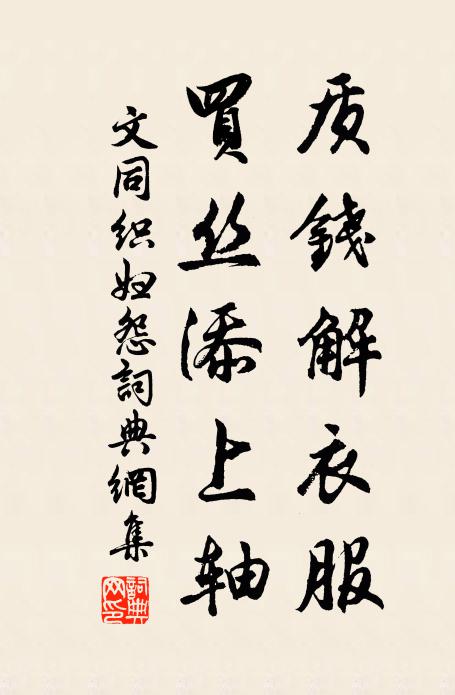 质錢解衣服
買丝添上轴
文同织妇怨詞典網集
詞典网印